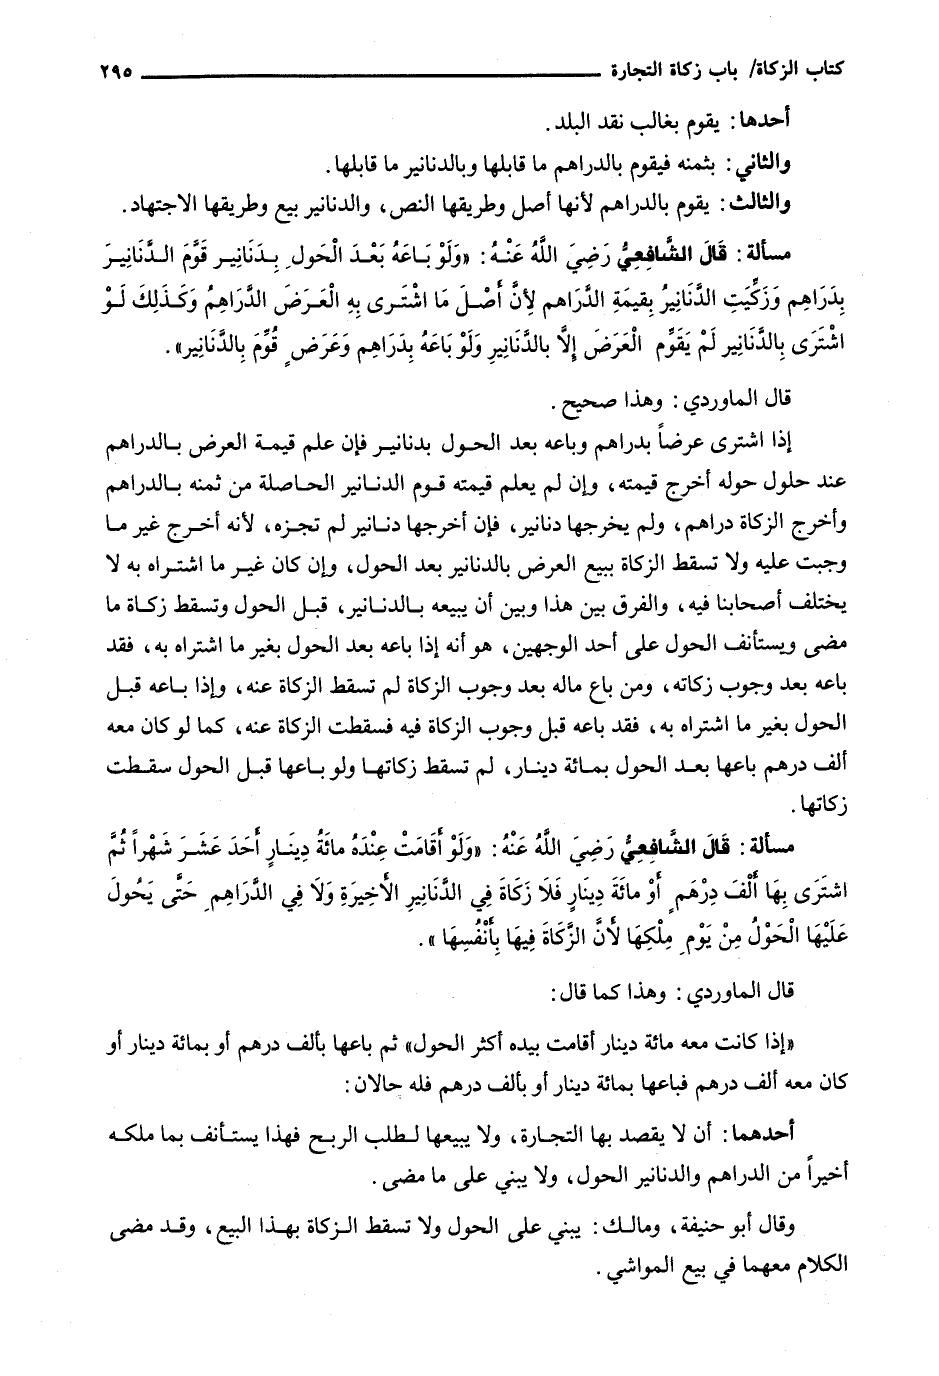 كتاب الزكاة/ باب زكاة التجارة ٢٩٥
أحدها: يقوم بغالب نقد البلد.
والثاني: بثمنه فيقوم بالدراهم ما قابلها وبالدنانير ما قابلها.
والثالث: يقوم بالدراهم لأنها أصل وطريقها النص، والدنانير بيع وطريقها الاجتهاد.
مسألة: قَالَ الشَّافِعِيُّ رَضِيَ اللَّهُ عَنْهُ: «وَلَوْ بَاعَهُ بَعْدَ الْحَولِ بِدَنَانِير قَوَّمَ الدَّنَانِيرَ
بِدَرَاهِم وَزَكِّيَتِ الدَّنَانِيرُ بِقِيمَةِ الدَّرَاهم لِأَنَّ أَصْلَ مَا اشْتَرى بِهِ الْعَرَضَ الدَّرَاهِمُ وَكَذَلِكَ لَوْ
اشْتَرَى بِالدَّنَانِير لَمْ يَقَوِّم الْعَرَضَ إِلَّا بالدَّنَانِيرِ وَلَوْ بَاعَهُ بِدَرَاهِم وَعَرَضٍ قُوِّمَ بِالدَّنَانِير».
قال الماوردي: وهذا صحيح.
إذا اشترى عرضاً بدراهم وباعه بعد الحول بدنانير فإن علم قيمة العرض بالدراهم
عند حلول حوله أخرج قيمته، وإن لم يعلم قيمته قوم الدنانير الحاصلة من ثمنه بالدراهم
وأخرج الزكاة دراهم، ولم يخرجها دنانير، فإن أخرجها دنانير لم تجزه، لأنه أخرج غير ما
وجبت عليه ولا تسقط الزكاة ببيع العرض بالدنانير بعد الحول، وإن كان غير ما اشتراه به لا
يختلف أصحابنا فيه، والفرق بين هذا وبين أن يبيعه بالدنانير، قبل الحول وتسقط زكاة ما
مضى ويستأنف الحول على أحد الوجهين، هو أنه إذا باعه بعد الحول بغير ما اشتراه به، فقد
باعه بعد وجوب زكاته، ومن باع ماله بعد وجوب الزكاة لم تسقط الزكاة عنه، وإذا باعه قبل
الحول بغير ما اشتراه به، فقد باعه قبل وجوب الزكاة فيه فسقطت الزكاة عنه، كما لو كان معه
ألف درهم باعها بعد الحول بمائة دينار، لم تسقط زكاتها ولو باعها قبل الحول سقطت
زكاتها.
مسألة: قَالَ الشَّافِعِيُّ رَضِيَ اللَّهُ عَنْهُ: «وَلَوْ أَقَامَتْ عِنْدَهُ مائَةُ دِينَارٍ أَحَدَ عَشَرَ شَهْراً ثُمَّ
اشْتَرَى بِهَا أَلْفَ دِرْهَمٍ أَوْ مائَةَ دِينَارٍ فَلَا زَكَاةَ فِي الدَّنَانِيرِ الْأَخِيرَةِ وَلَا فِي الدَّرَاهِمِ حَتَّى يَحُولَ
عَلَيْهَا الْحَوْلُ مِنْ يَوْمِ مِلْكِهَا لأَنَّ الزَّكَاةَ فِيهَا بِأَنْفُسِهَا».
قال الماوردي: وهذا كما قال:
«إذا كانت معه مائة دينار أقامت بيده أكثر الحول» ثم باعها بألف درهم أو بمائة دينار أو
كان معه ألف درهم فباعها بمائة دينار أو بألف درهم فله حالان:
أحدهما: أن لا يقصد بها التجارة، ولا يبيعها لطلب الربح فهذا يستأنف بما ملكه
أخيراً من الدراهم والدنانير الحول، ولا يبني على ما مضى.
وقال أبو حنيفة، ومالك: يبني على الحول ولا تسقط الزكاة بهذا البيع، وقد مضى
الكلام معهما في بيع المواشي.